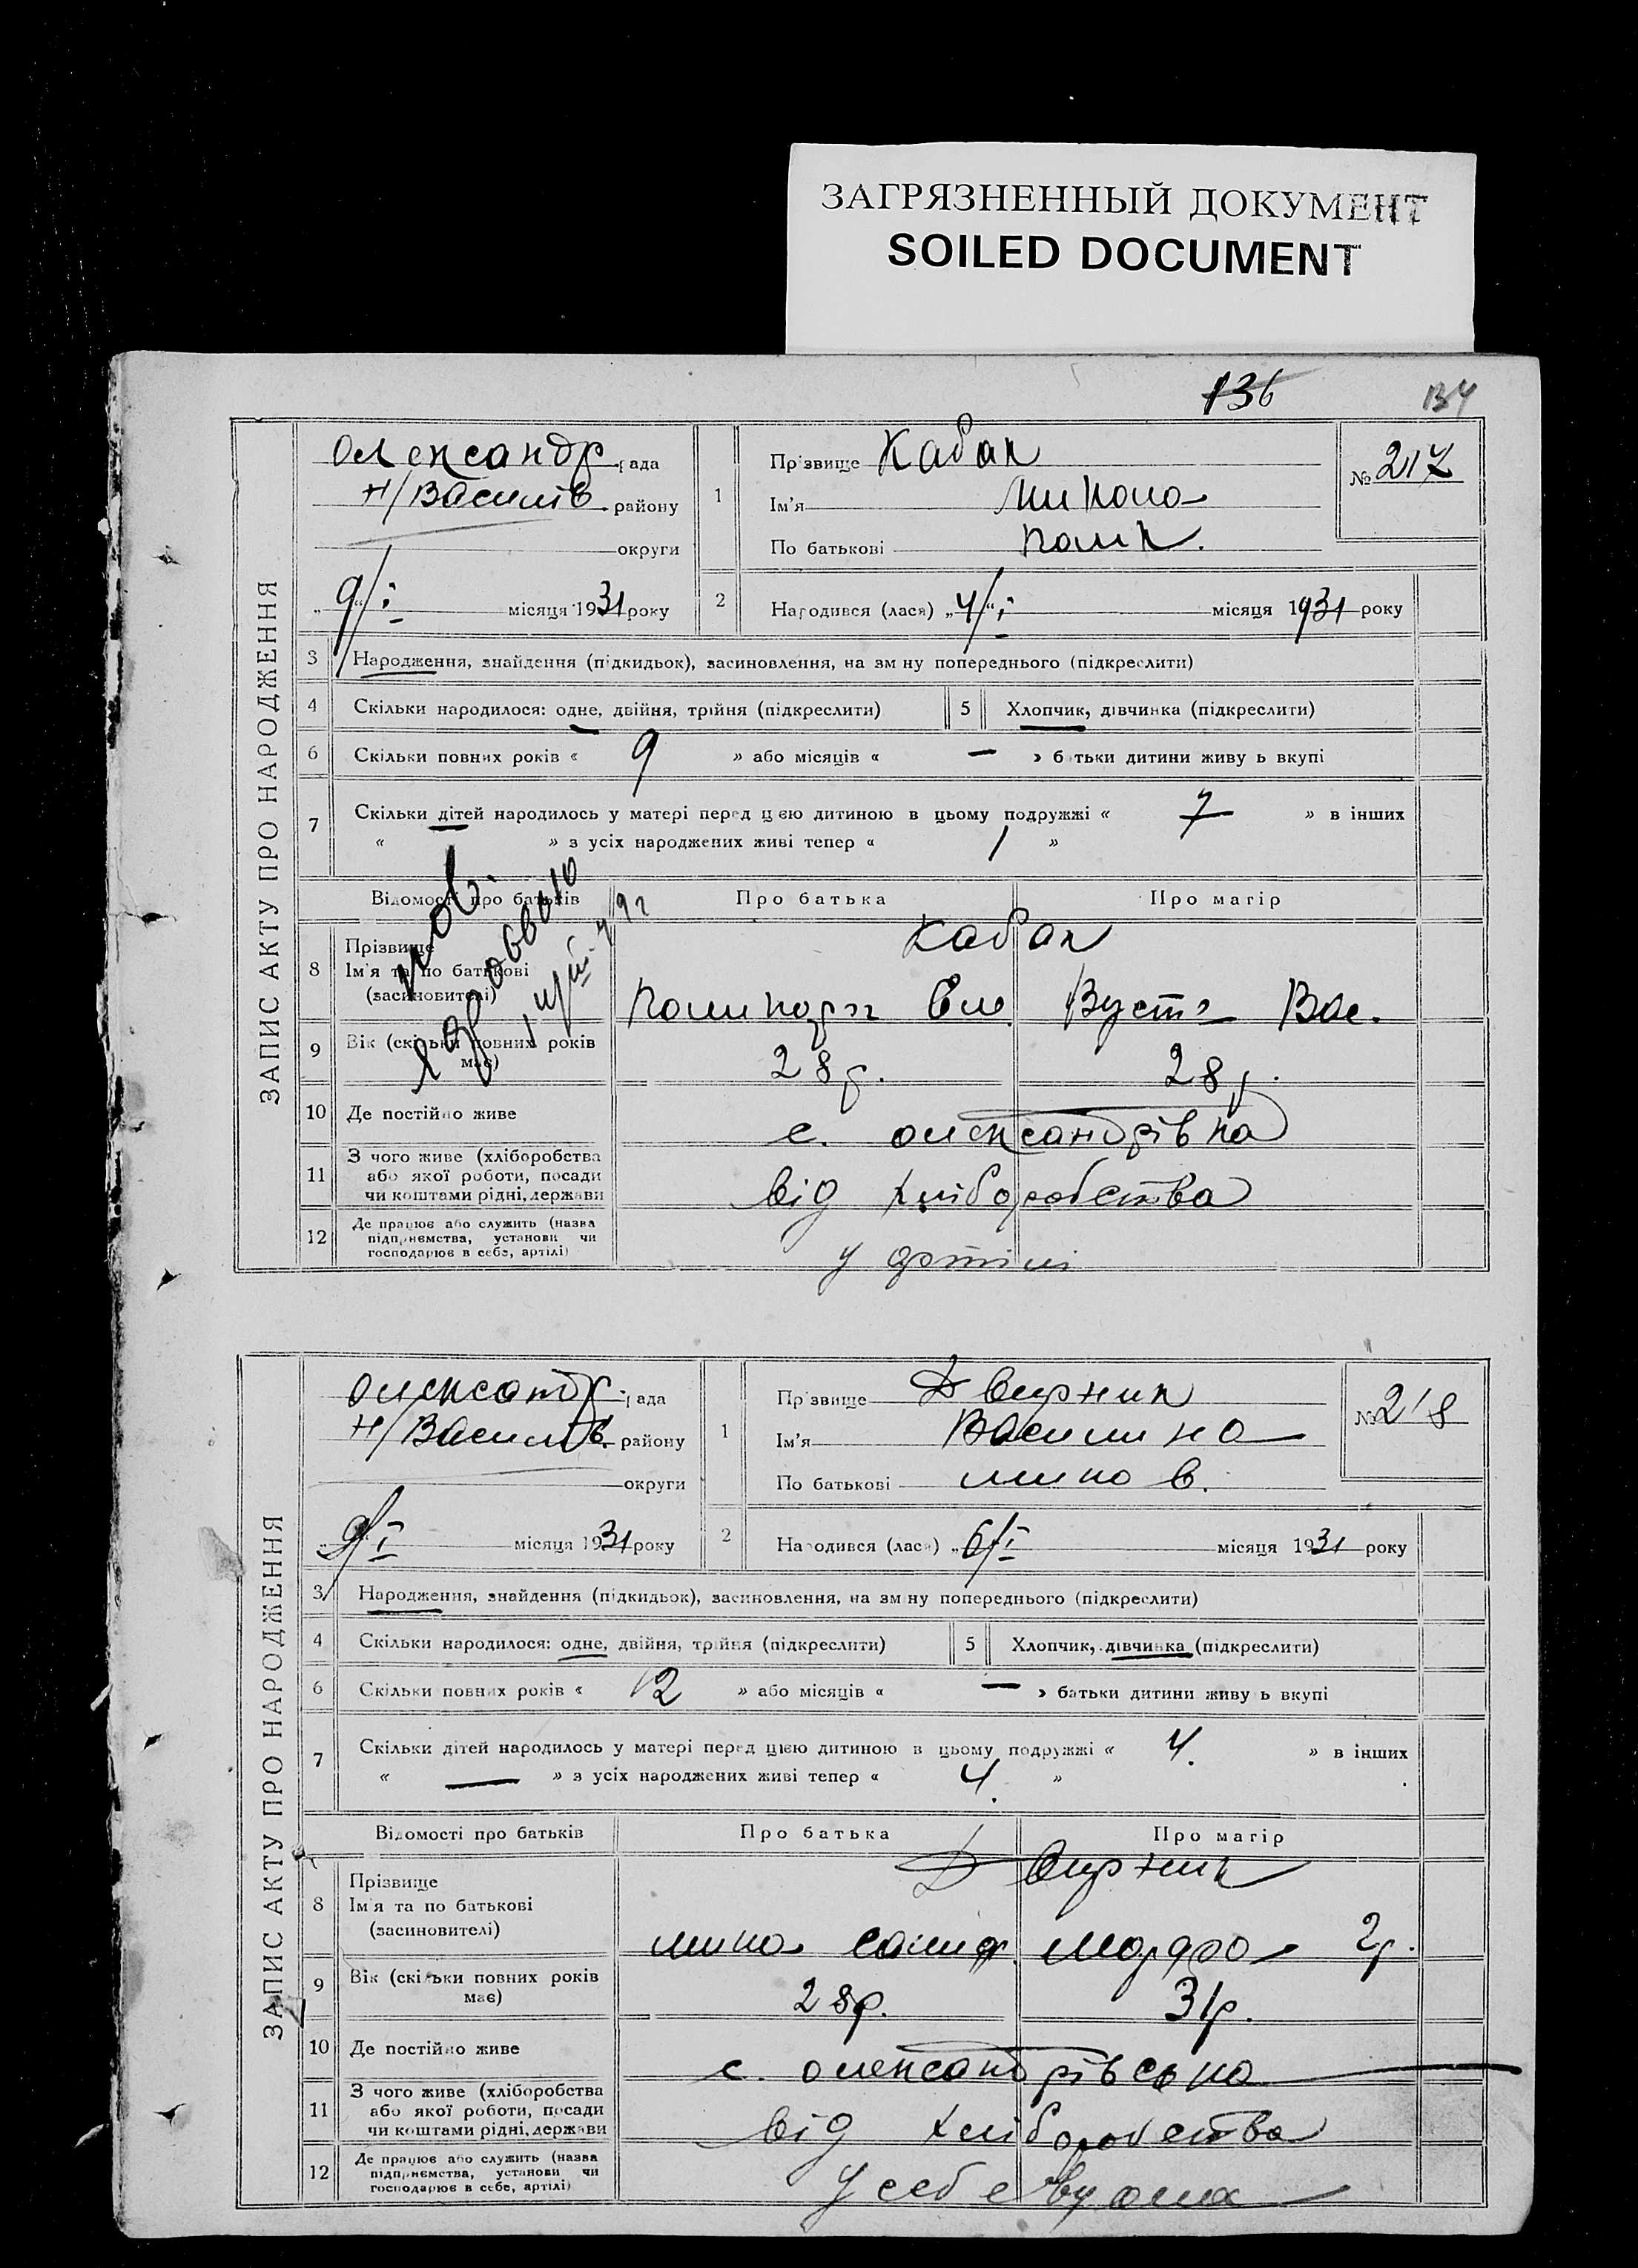 ЗАГРЯЗНЕННЫЙ ДОКУМЕНТ
SOILED DOCUMENT
136 134
ЗАПИС АКТУ ПРО НАРОДЖЕННЯ
Олександр. рада
Н/Василів. району
округи
9/I місяця 1931 року
1 Прізвище Кабак
Ім'я Микола
По батькові Полік.
№ 217
2 Народився (лася) „4/I" місяця 1931 року
3 Народження, знайдення (підкидьок), засиновлення, на зміну попереднього (підкреслити)
4 Скільки народилося: одне, двійня, трійня (підкреслити) 5 Хлопчик, дівчинка (підкреслити)
6 Скільки повних років « 9 » або місяців « — » батьки дитини живуть вкупі
7 Скільки дітей народилось у матері перед цією дитиною в цьому подружжі « 7 » в інших
« » з усіх народжених живі тепер « 1 »
Відомості про батьків Про батька Про матір
8 Прізвище Кабак
Ім'я та по батькові
(засиновителі)
Вуст. Вас.
9 Вік (скільки повних років має) 28 р. 28 р.
10 Де постійно живе с. Олександрівка
11 З чого живе (хліборобства
або якої роботи, посади
чи коштами рідні, держави від хліборобства
12 Де працює або служить (назва
підприємства, установи чи
господарює в себе, артілі) у артілі
ЗАПИС АКТУ ПРО НАРОДЖЕННЯ
Олександр. рада
Н/Василів. району
округи
9/I місяця 1931 року
1 Прізвище Двирник
Ім'я Василина
По батькові Минов.
№ 218
2 Народився (лася) „6/I місяця 1931 року
3 Народження, знайдення (підкидьок), засиновлення, на зміну попереднього (підкреслити)
4 Скільки народилося: одне, двійня, трійня (підкреслити) 5 Хлопчик, дівчинка (підкреслити)
6 Скільки повних років « 12 » або місяців « — » батьки дитини живуть вкупі
7 Скільки дітей народилось у матері перед цією дитиною в цьому подружжі « 4. » в інших
« — » з усіх народжених живі тепер « 4. »
Відомості про батьків Про батька Про матір
8 Прізвище Двирник
Ім'я та по батькові
(засиновителі)
Мина
9 Вік (скільки повних років має) 28 р. 31 р.
10 Де постійно живе с. Олександрівська
11 З чого живе (хліборобства
або якої роботи, посади
чи коштами рідні, держави від хліборобства
12 Де працює або служить (назва
підприємства, установи чи
господарює в себе, артілі) У себе вдома